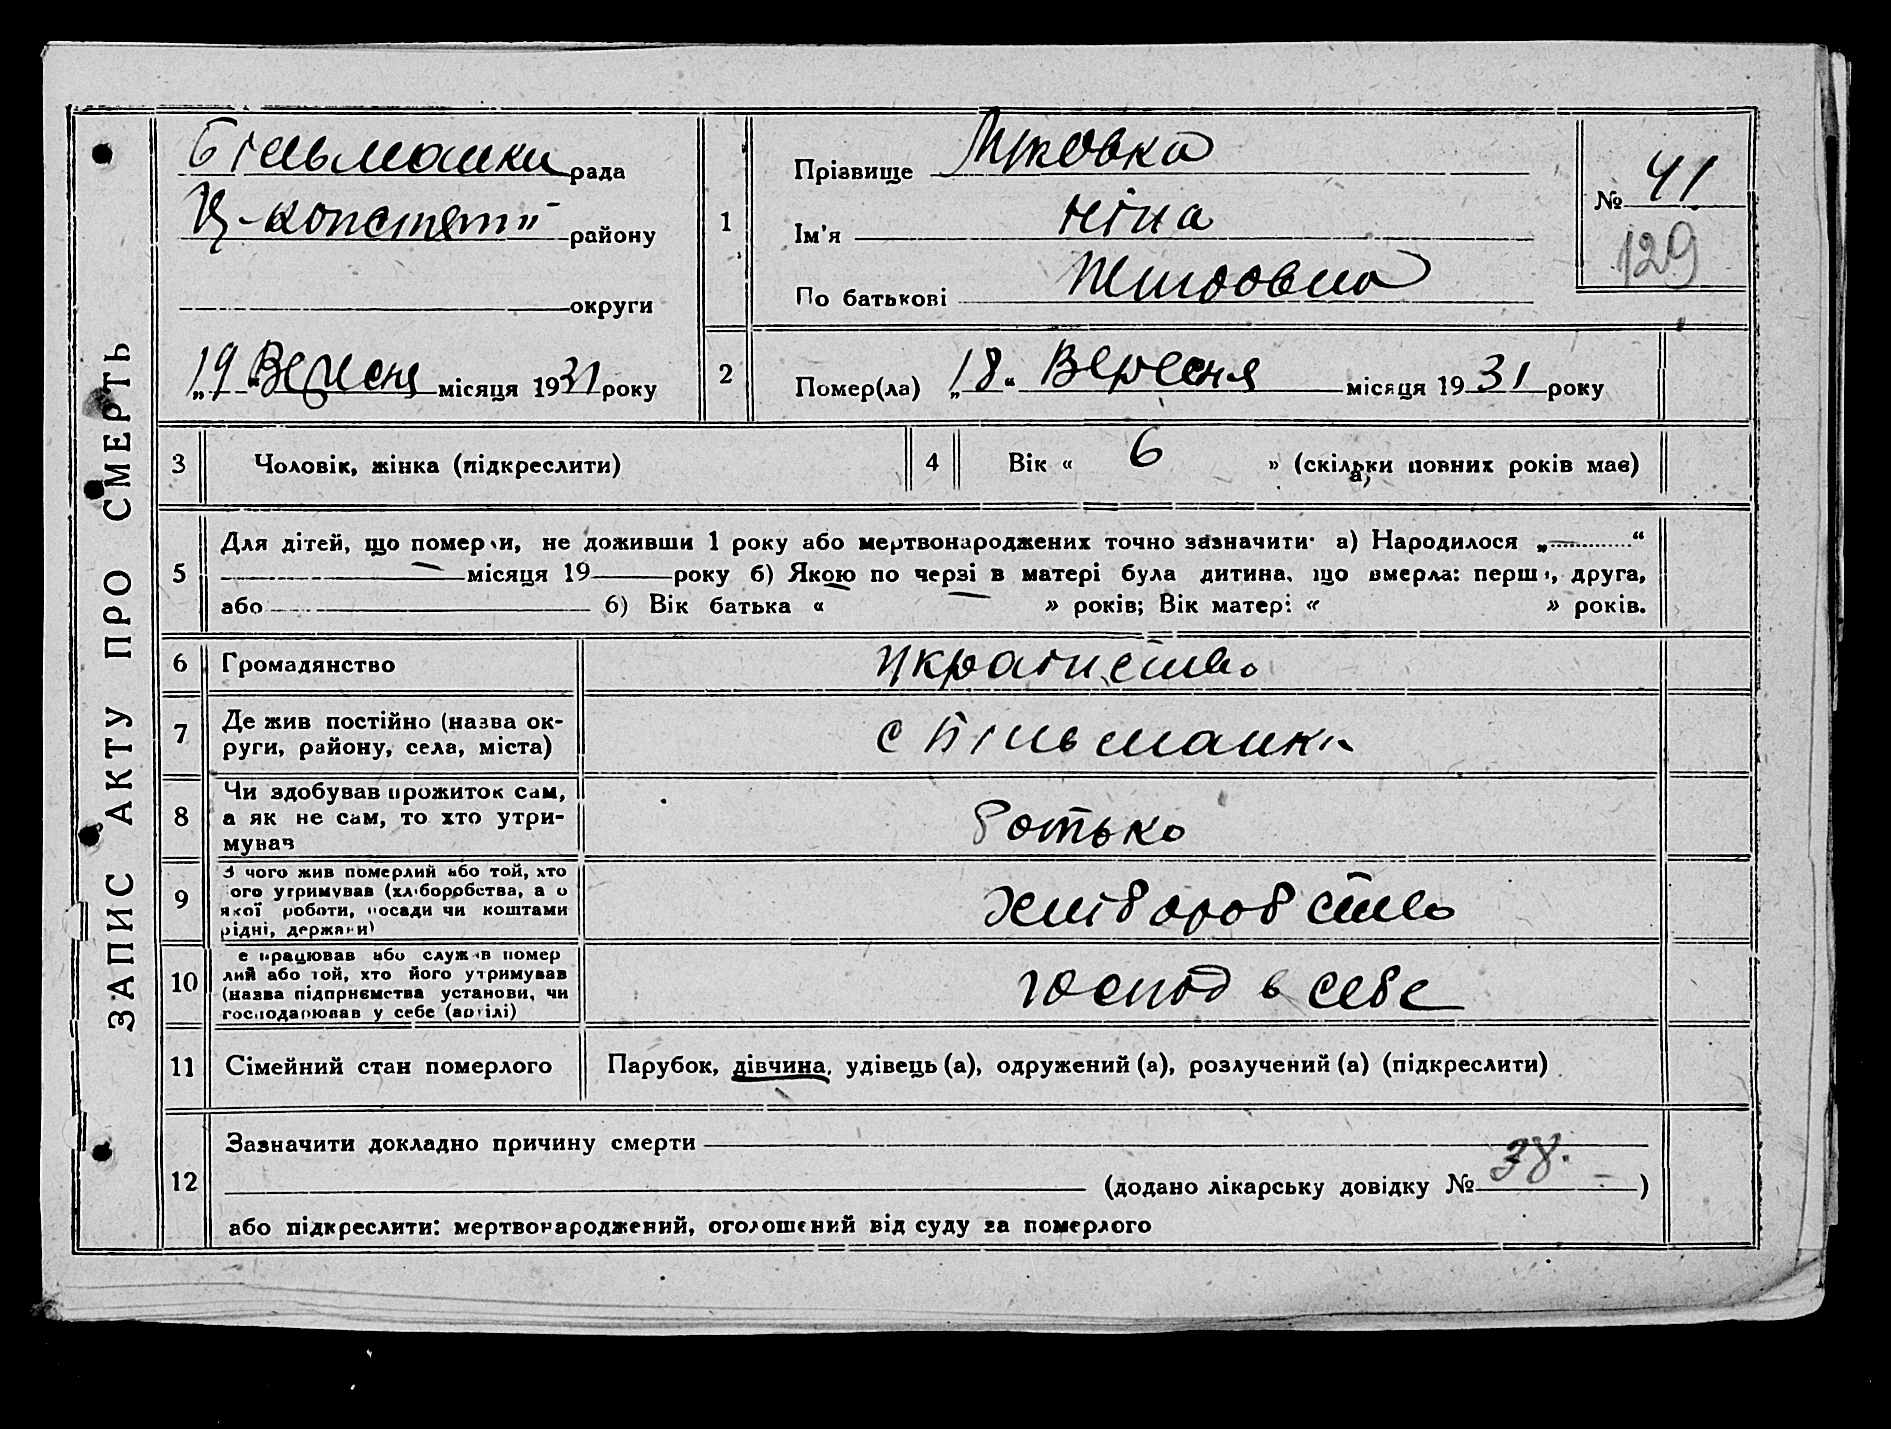 ЗАПИС АКТУ ПРО СМЕРТЬ
Більманки рада
району
округи
„19 Вересня місяця 1931 року
1
Прізвище
Ім'я Ніна
По батькові
№ 41
129
2
Помер(ла) „18“ Вересня місяця 1931 року
3 Чоловік, жінка (підкреслити)
4 Вік « 6 » (скільки повних років має)
а)
5 Для дітей, що померли, не доживши 1 року або мертвонароджених точно зазначити· а) Народилося „ “
місяця 19 року б) Якою по черзі в матері була дитина, що вмерла: перша, друга,
або б) Вік батька « » років; Вік матері « » років.
6 Громадянство
7 Де жив постійно (назва ок-
руги, району, села, міста)
с Більманки
8 Чи здобував прожиток сам,
а як не сам, то хто утри-
мував
батько
9 З чого жив померлий або той, хто
ого утримував (хліборобства, а о
якої роботи, посади чи коштами
рідні, держави)
хліборобство
10 е працював або служив помер
лий або той, хто його утримував
(назва підприємства установи, чи
господарював у себе (артілі)
господ в себе
11 Сімейний стан померлого
Парубок, дівчина, удівець (а), одружений (а), розлучений (а) (підкреслити)
12 Зазначити докладно причину смерти
(додано лікарську довідку № 38. )
або підкреслити: мертвонароджений, оголошений від суду за померлого